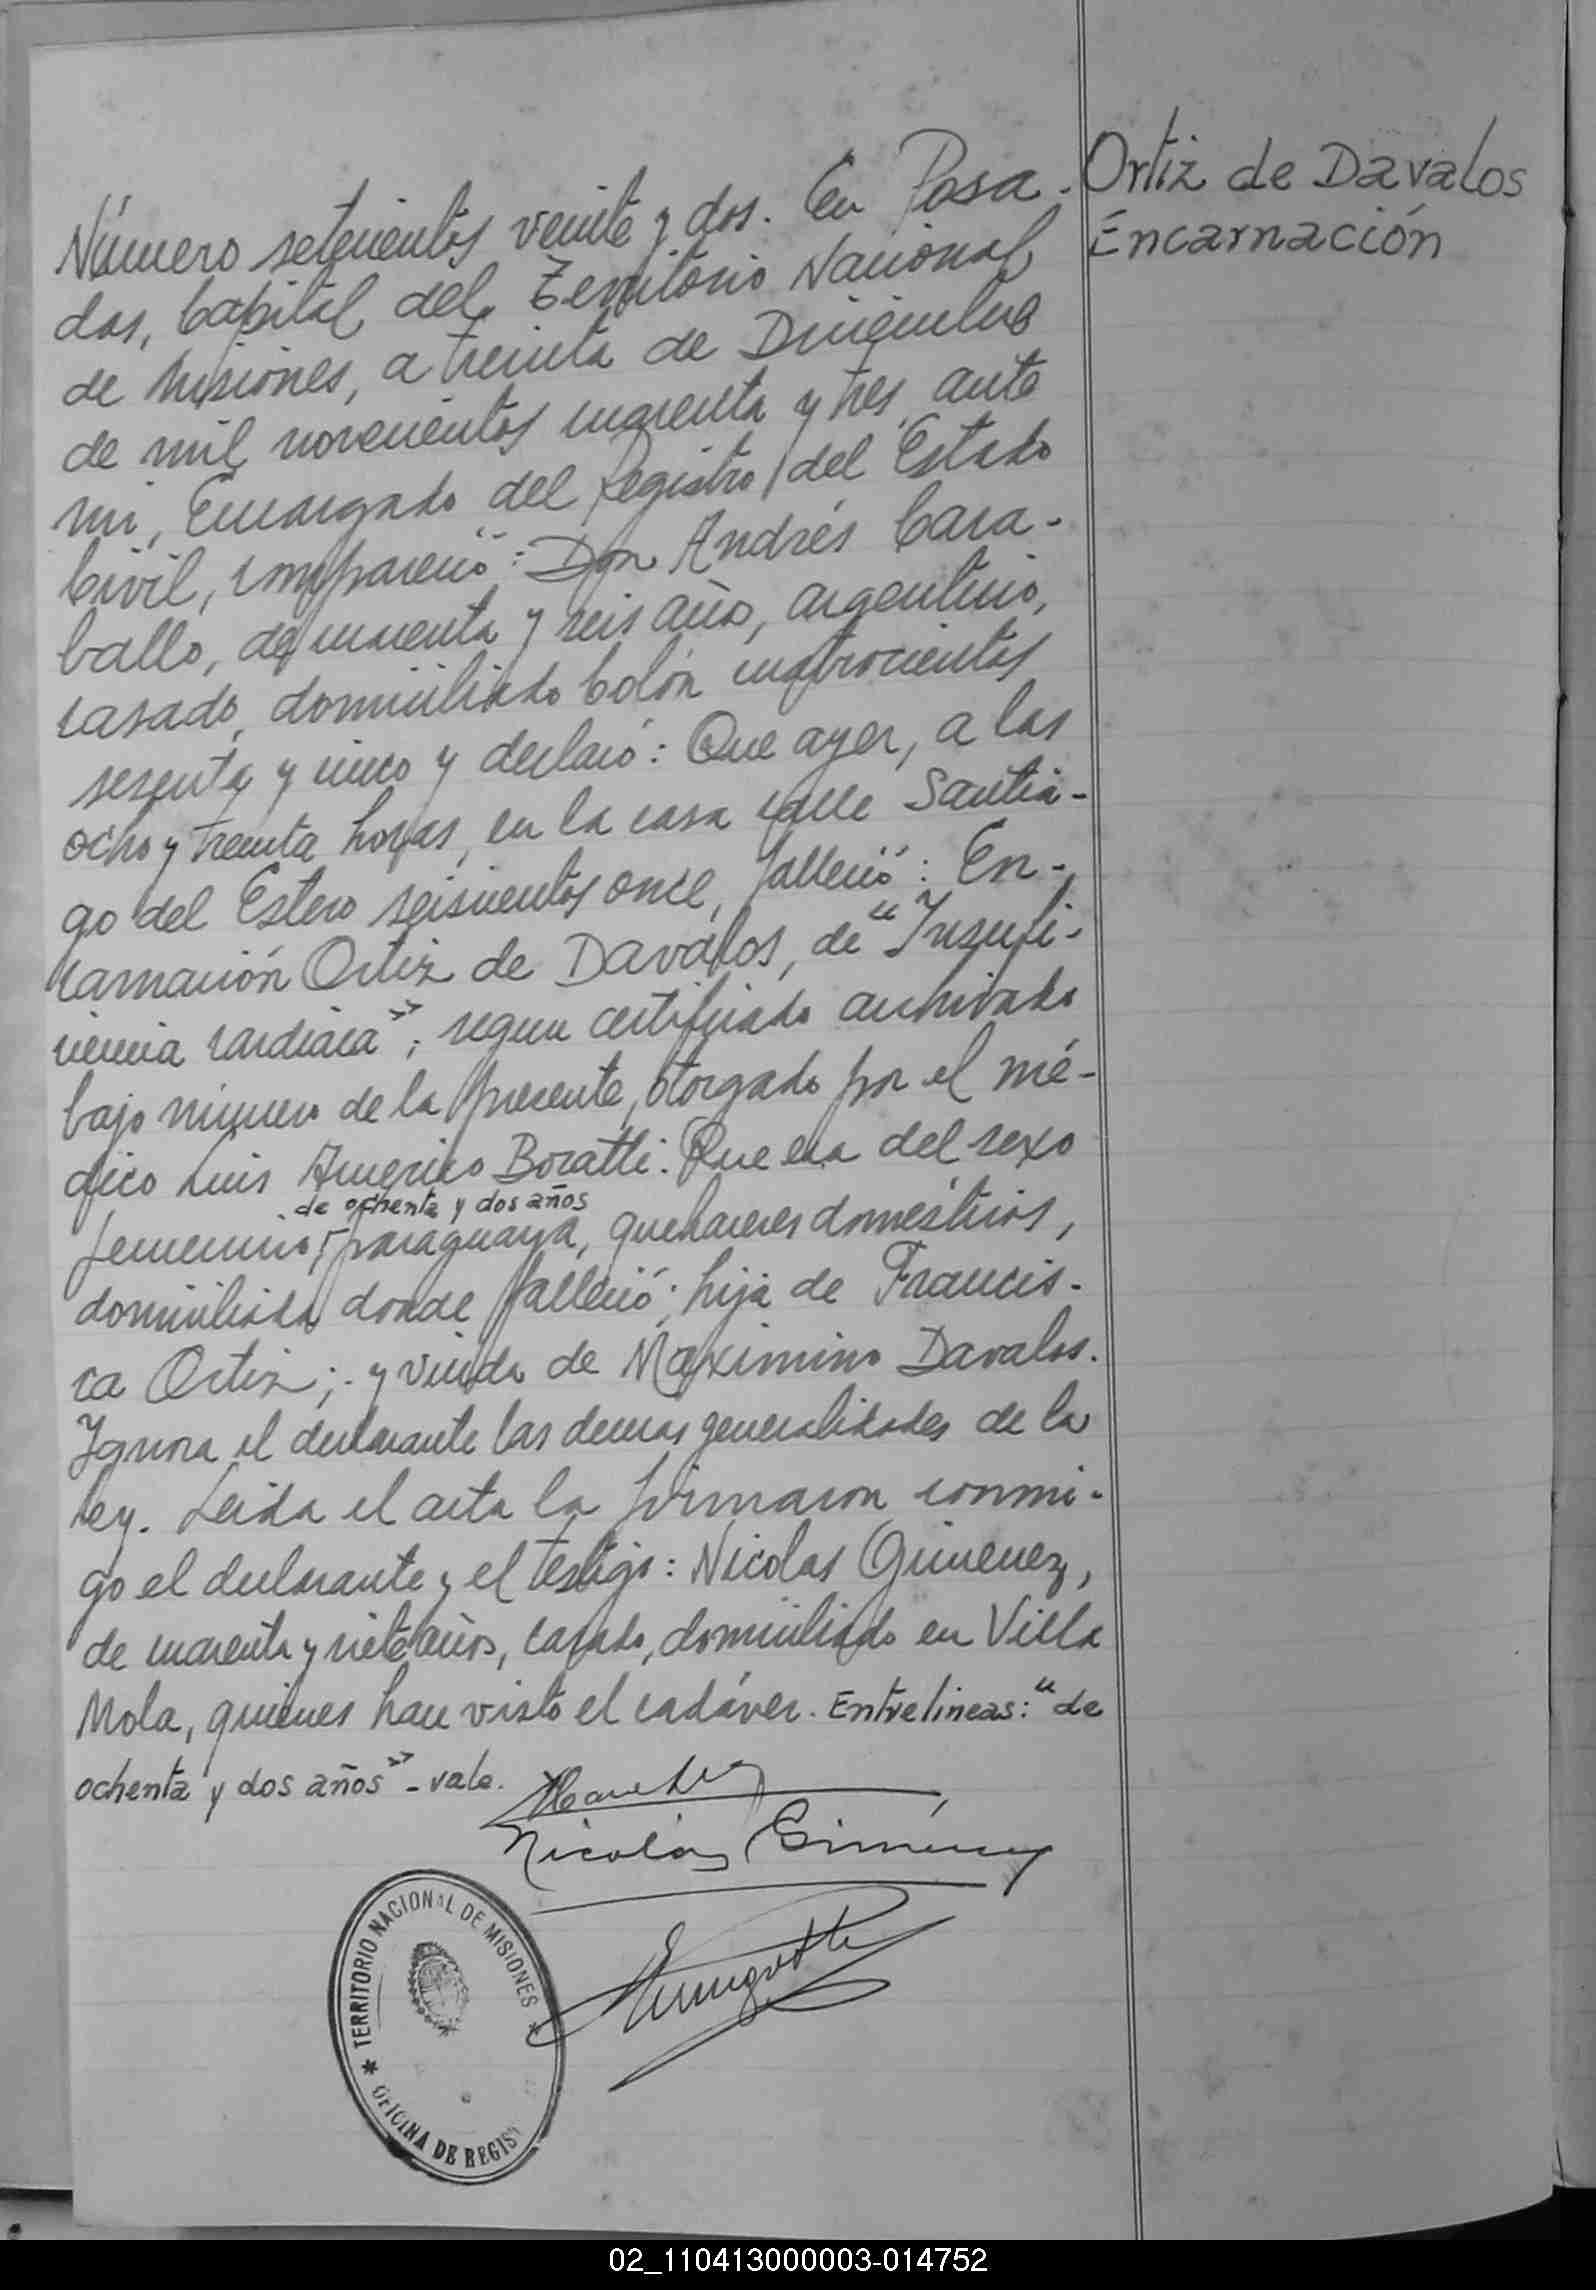 Ortiz de Davalos
Encarnación
Número setecientos veinte y dos. En Posa-
das, Capital del Territorio Nacional
de Misiones, a treinta de Diciembre
de mil novecientos cuarenta y tres, ante
mi, Encargado del Registro del Estado
Civil, compareció: Don Andrés Cara-
ballo, de cuarenta y seis años, argentino,
casado, domiciliado Colón cuatrocientos
sesenta y cinco y declaró: Que ayer, a las
ocho y treinta horas, en la casa calle Santia-
go del Estero seiscientos once, falleció: En-
carnación Ortiz de Davalos, de "Insufi-
ciencia cardiaca"; segun certificado archivado
bajo número de la presente, otorgado por el mé-
dico Luis Americo Boratti. Que era del sexo
de ochenta y dos años
femenino, paraguaya, quehaceres domésticos,
domiciliada donde falleció; hija de Francis-
ca Ortiz; y viuda de Maximino Davalos.
Ignora el declarante las demas generalidades de la
ley. Leida el acta la firmaron conmi-
go el declarante y el testigo: Nicolas Gimenez,
de cuarenta y siete años, casado, domiciliado en Villa
Mola, quienes han visto el cadáver. Entrelineas: "de
ochenta y dos años" - vale.
Nicolás Giménez
TERRITORIO NACIONAL DE MISIONES
OFICINA DE REGIS
02_110413000003-014752